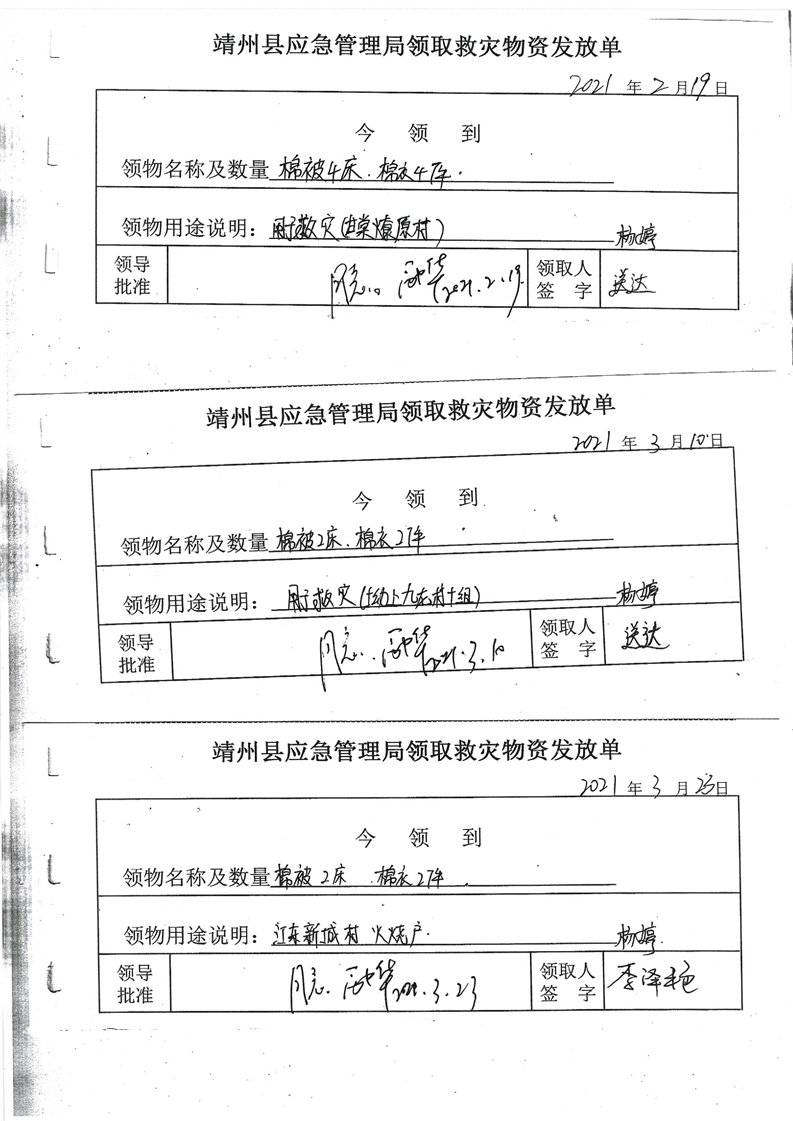 靖州县应急管理局领取救灾物资发放单
2021 年 2 月 19 日
今 领 到
领物名称及数量 棉被4床、棉衣4件.
领物用途说明: 用于救灾(甘棠燎原村) 杨婷
领导批准 同意. 2021.2.19. 领取人签字 送达
靖州县应急管理局领取救灾物资发放单
2021 年 3 月 10 日
今 领 到
领物名称及数量 棉被2床、棉衣2件
领物用途说明: 用于救灾( 村十组) 杨婷
领导批准 同意. 2021.3.10 领取人签字 送达
靖州县应急管理局领取救灾物资发放单
2021 年 3 月 23 日
今 领 到
领物名称及数量 棉被2床 、棉衣2件 .
领物用途说明: 江东新城村 火烧户 杨婷
领导批准 同意. 2021.3.23 领取人签字 李泽